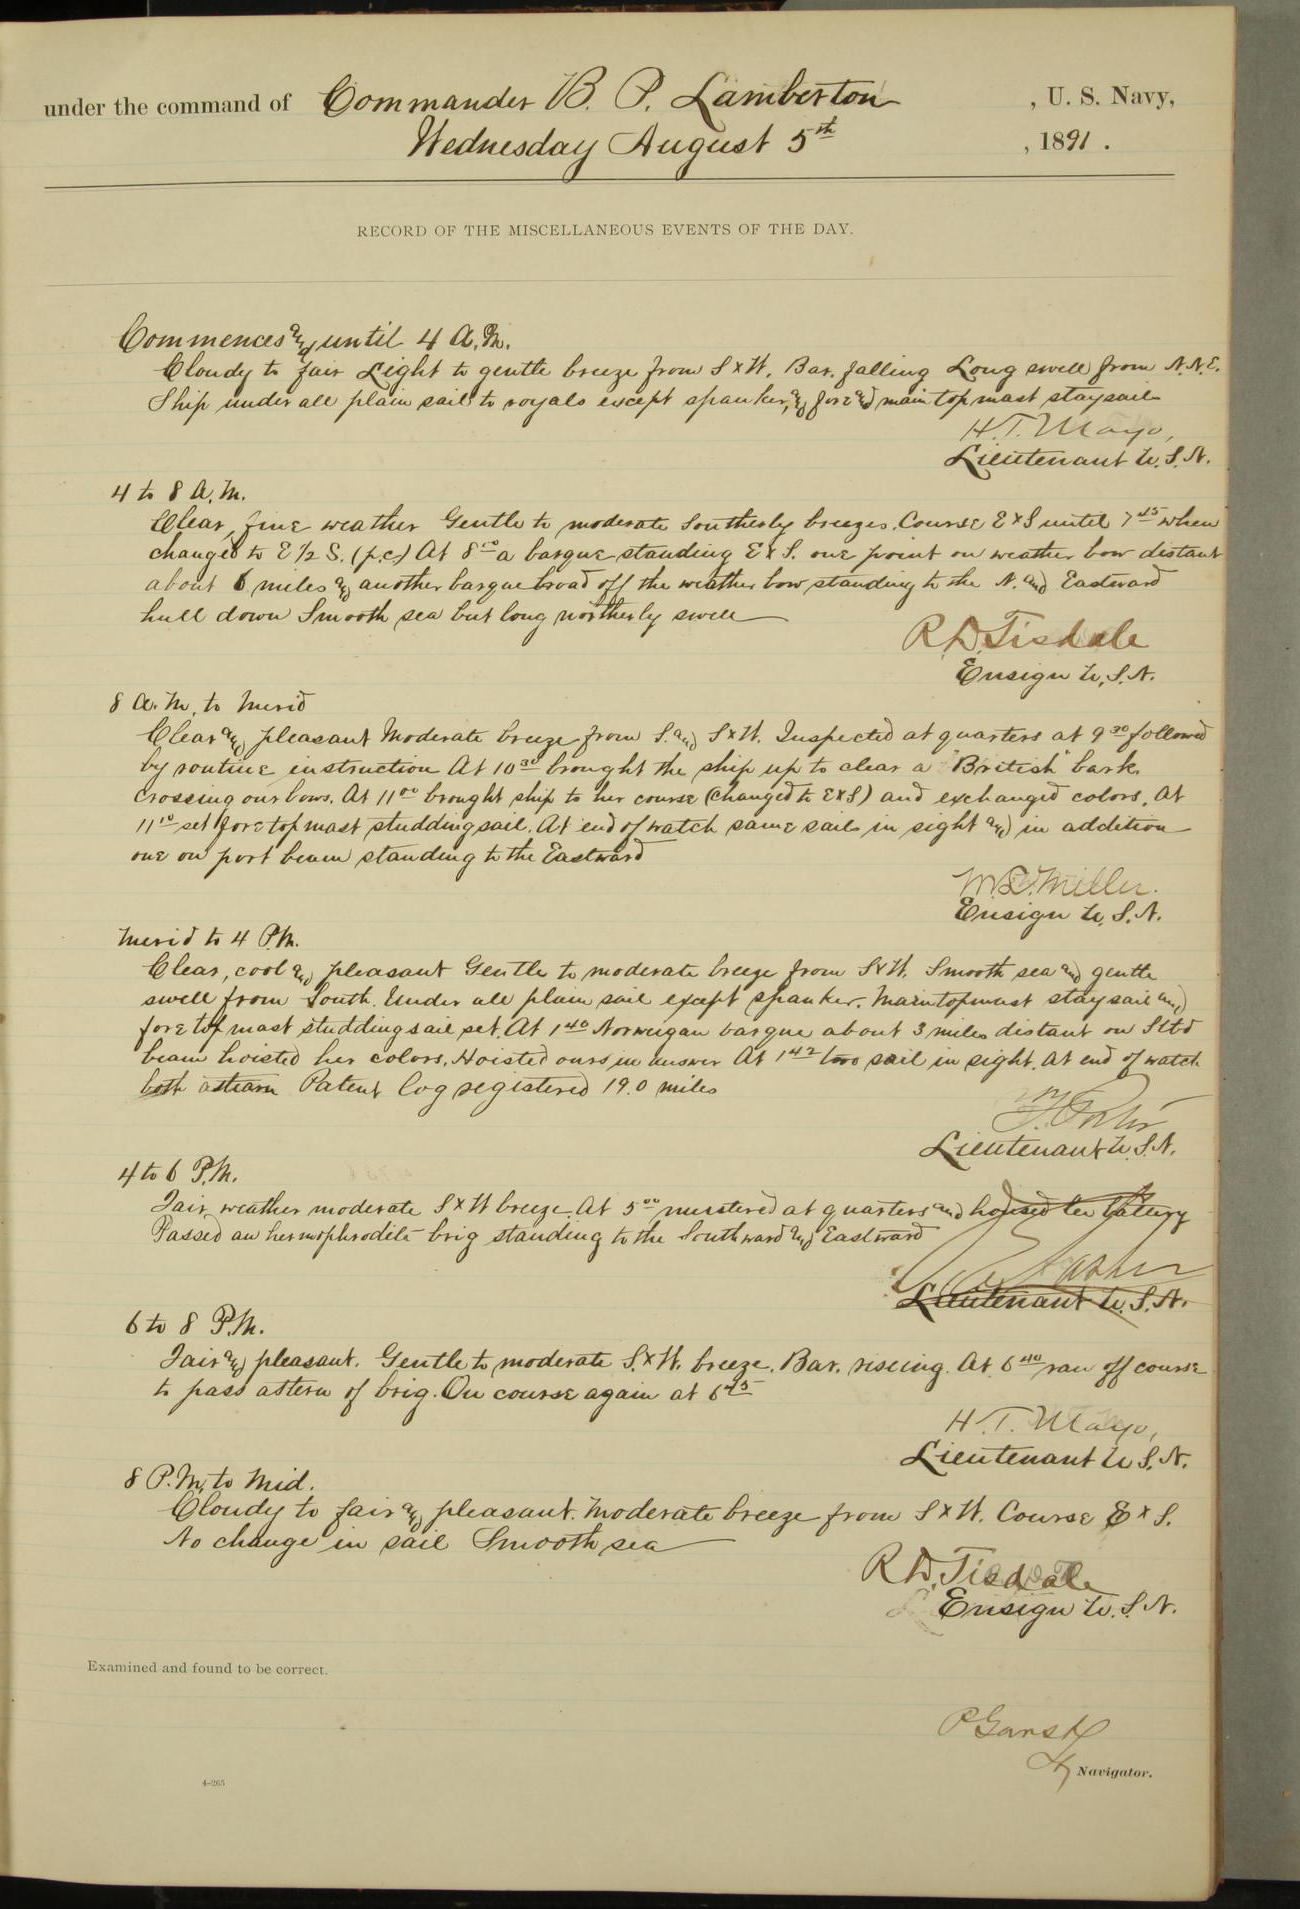 under the command of Commander B. P. Lamberton , U. S. Navy,
Wednesday August 5th , 1891 .
RECORD OF THE MISCELLANEOUS EVENTS OF THE DAY.
Commences and until 4 A.M.
Cloudy to fair Light to gentle breeze from S x W. Bar. falling Long swell from N.N.E.
Ship under all plain sail to royals except spanker, and fore and main top mast staysails
H. T. Mayo,
Lieutenant U.S.N.
4 to 8 A.M.
Clear, fine weather Gentle to moderate Southerly breezes. Course E x S until 7 45 when
changed to E 1/2 S. (p.c.) At 8 00 a barque standing E x S. one point on weather bow distant
about 6 miles and another barque broad off the weather bow standing to the N. and Eastward
hull down Smooth sea but long northerly swell
R. D. Tisdale
Ensign U.S.N.
8 A.M. to Merid
Clear and pleasant Moderate breeze from S. and S x W. Inspected at quarters at 9 30 followed
by routine instruction At 10 30 brought the ship up to clear a "British" bark
crossing our bows. At 11 00 brought ship to her course (changed to E x S) and exchanged colors. At
11 10 set fore top mast studding sail. At end of watch same sails in sight and in addition
one on port beam standing to the Eastward
Miller.
Ensign U.S.N.
Merid to 4 P.M.
Clear, cool and pleasant Gentle to moderate breeze from S x W. Smooth sea and gentle
swell from South. Under all plain sail except spanker. Main topmast staysail and
fore top mast studding sail set. At 1 40 Norweigan barque about 3 miles distant on Stbd
beam hoisted her colors. Hoisted ours in answer At 1 42 two sail in sight. At end of watch
both astearn Patent log registered 19.0 miles
Lieutenant U.S.N.
4 to 6 P.M.
Fair weather moderate S x W breeze. At 5 00 mustered at quarters and housed the battery
Passed an hermophrodite brig standing to the Southward and Eastward
Lieutenant U.S.N.
6 to 8 P.M.
Fair and pleasant. Gentle to moderate S. x W. breeze. Bar. riseing. At 6 40 ran off course
to pass astern of brig. On course again at 6 45
H. T. Mayo,
Lieutenant U.S.N.
8 P.M. to Mid.
Cloudy to fair and pleasant. Moderate breeze from S x W. Course E x S.
No change in sail Smooth sea
R. D. Tisdale
Ensign U.S.N.
Examined and found to be correct.
Navigator.
4-265